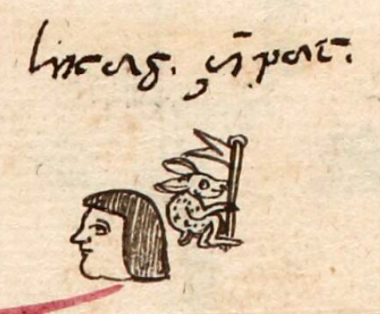 lucas. çipat.